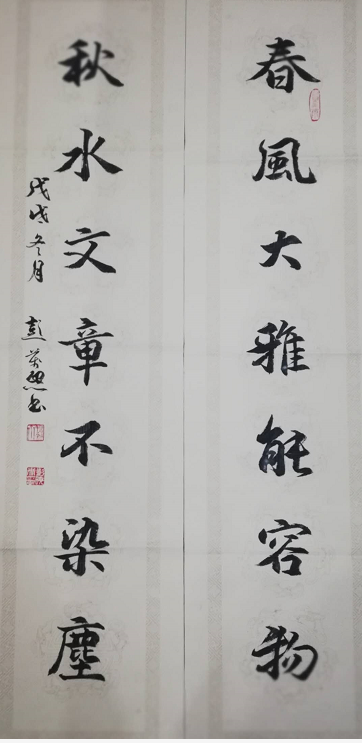 春風大雅能容物
秋水文章不染塵
戊戌冬月